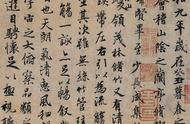 九年歲在
稽山陰之蘭亭
至少長咸集
峻領茂林脩竹又有清
右引以為流
其次雖無絲竹
觴一詠亦足以暢敘
也天朗氣清惠風和
宙之大俯察品類
遊目騁懷足以極視